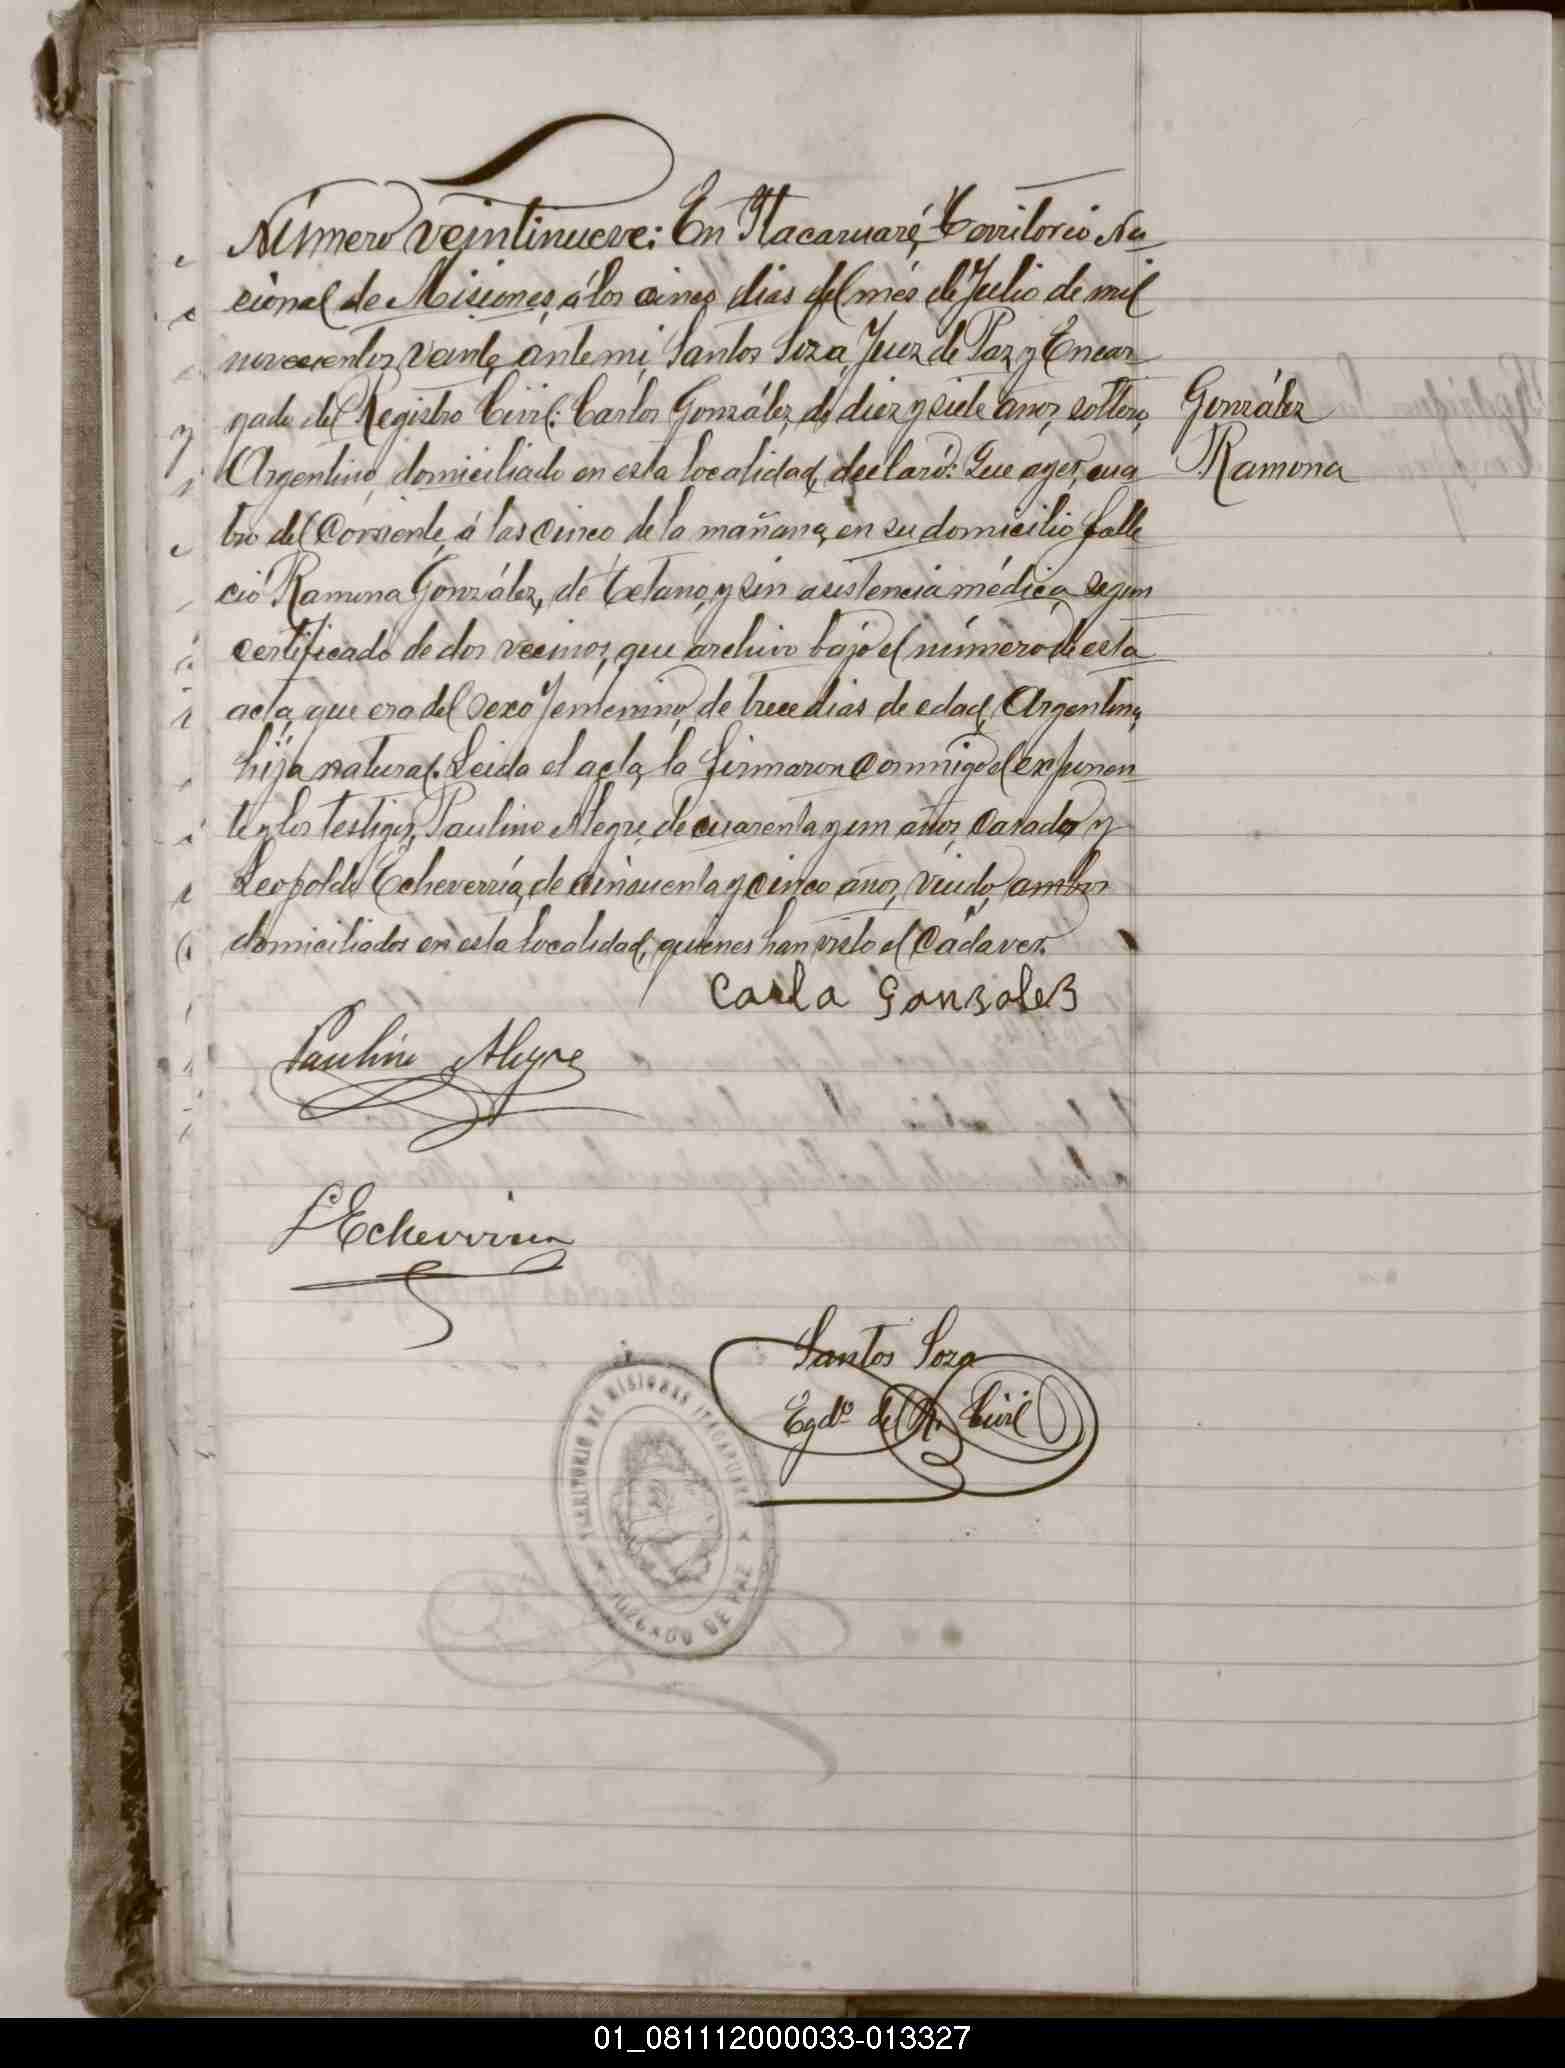 Número veintinueve: En Itacaruaré, Territorio Na
cional de Misiones, á los cinco dias del més de Julio de mil
novecientos veinte, ante mi, Santos Soza, Juez de Paz y Encar
gado del Registro Civil: Carlos González, de diez y siete años, soltero,
Argentino, domiciliado en esta localidad, declaró: Que ayer, cua
tro del corriente, á las cinco de la mañana, en su domicilio falle
ció Ramona González, de tetano, y sin asistencia médica, segun
certificado de dos vecinos, que archivo bajo el número de esta
acta, que era del sexo femenino, de trece dias de edad, Argentina,
hija natural. Leida el acta, la firmaron conmigo el exponen
te y los testigos, Paulino Alegre, de cuarenta y un años, casado y
Leopoldo Echeverría, de cincuenta y cinco años, viudo, ambos
domiciliados en esta localidad, quienes han visto el cadaver.
González
Ramona
Carla Gonzalez
Paulino Alegre
L Echeverria
Santos Soza
Egdo del R. Civil
TERRITORIO DE MISIONES ITACARUARÉ
JUZGADO DE PAZ
01_081112000033-013327